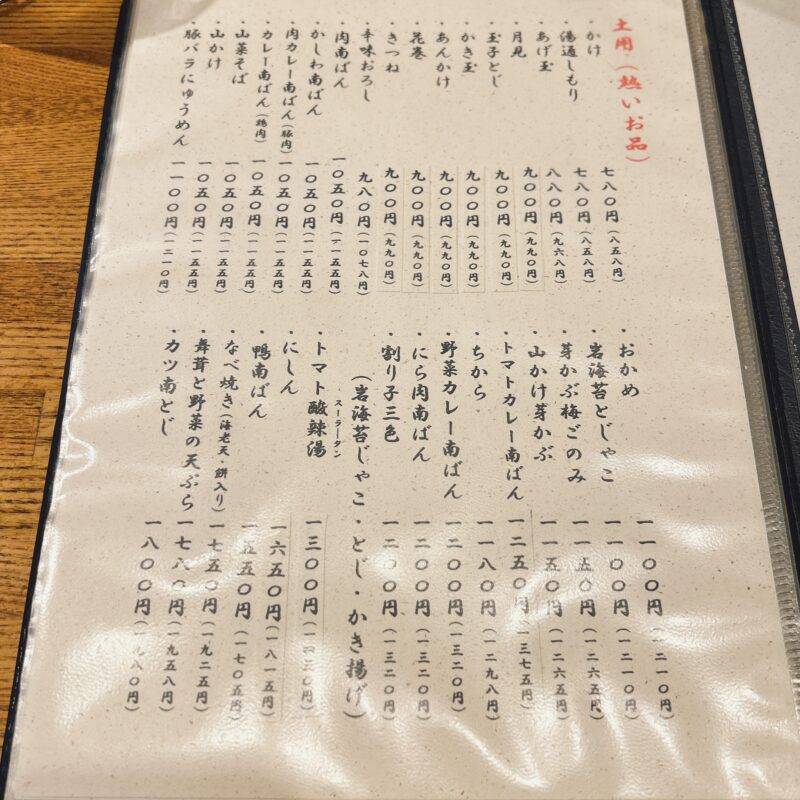 土用(熱いお品)
・かけ 七八〇円(八五八円)
・湯通しもり 七八〇円(八五八円)
・あげ玉 八八〇円(九六八円)
・月見 九〇〇円(九九〇円)
・玉子とじ 九〇〇円(九九〇円)
・かき玉 九〇〇円(九九〇円)
・あんかけ 九〇〇円(九九〇円)
・花巻 九〇〇円(九九〇円)
・きつね 九〇〇円(九九〇円)
・辛味おろし 九八〇円(一〇七八円)
・肉南ばん 一〇五〇円(一一五五円)
・かしわ南ばん 一〇五〇円(一一五五円)
・肉カレー南ばん(豚肉) 一〇五〇円(一一五五円)
・カレー南ばん(鶏肉) 一〇五〇円(一一五五円)
・山菜そば 一〇五〇円(一一五五円)
・山かけ 一〇五〇円(一一五五円)
・豚バラにゅうめん 一一〇〇円(一二一〇円)
・おかめ 一一〇〇円(一二一〇円)
・岩海苔とじゃこ 一一〇〇円(一二一〇円)
・芽かぶ梅ごのみ 一一五〇円(一二六五円)
・山かけ芽かぶ 一一五〇円(一二六五円)
・トマトカレー南ばん 一二五〇円(一三七五円)
・ちから 一一八〇円(一二九八円)
・野菜カレー南ばん 一二〇〇円(一三二〇円)
・にら肉南ばん 一二〇〇円(一三二〇円)
・割り子三色 一二〇〇円(一三二〇円)
(岩海苔じゃこ・とじ・かき揚げ)
スーラータン
・トマト酸辣湯 一三〇〇円(一四三〇円)
・にしん 一六五〇円(一八一五円)
・鴨南ばん 一五五〇円(一七〇五円)
・なべ焼き(海老天・餅入り) 一七五〇円(一九二五円)
・舞茸と野菜の天ぷら 一七八〇円(一九五八円)
・カツ南とじ 一八〇〇円(一九八〇円)